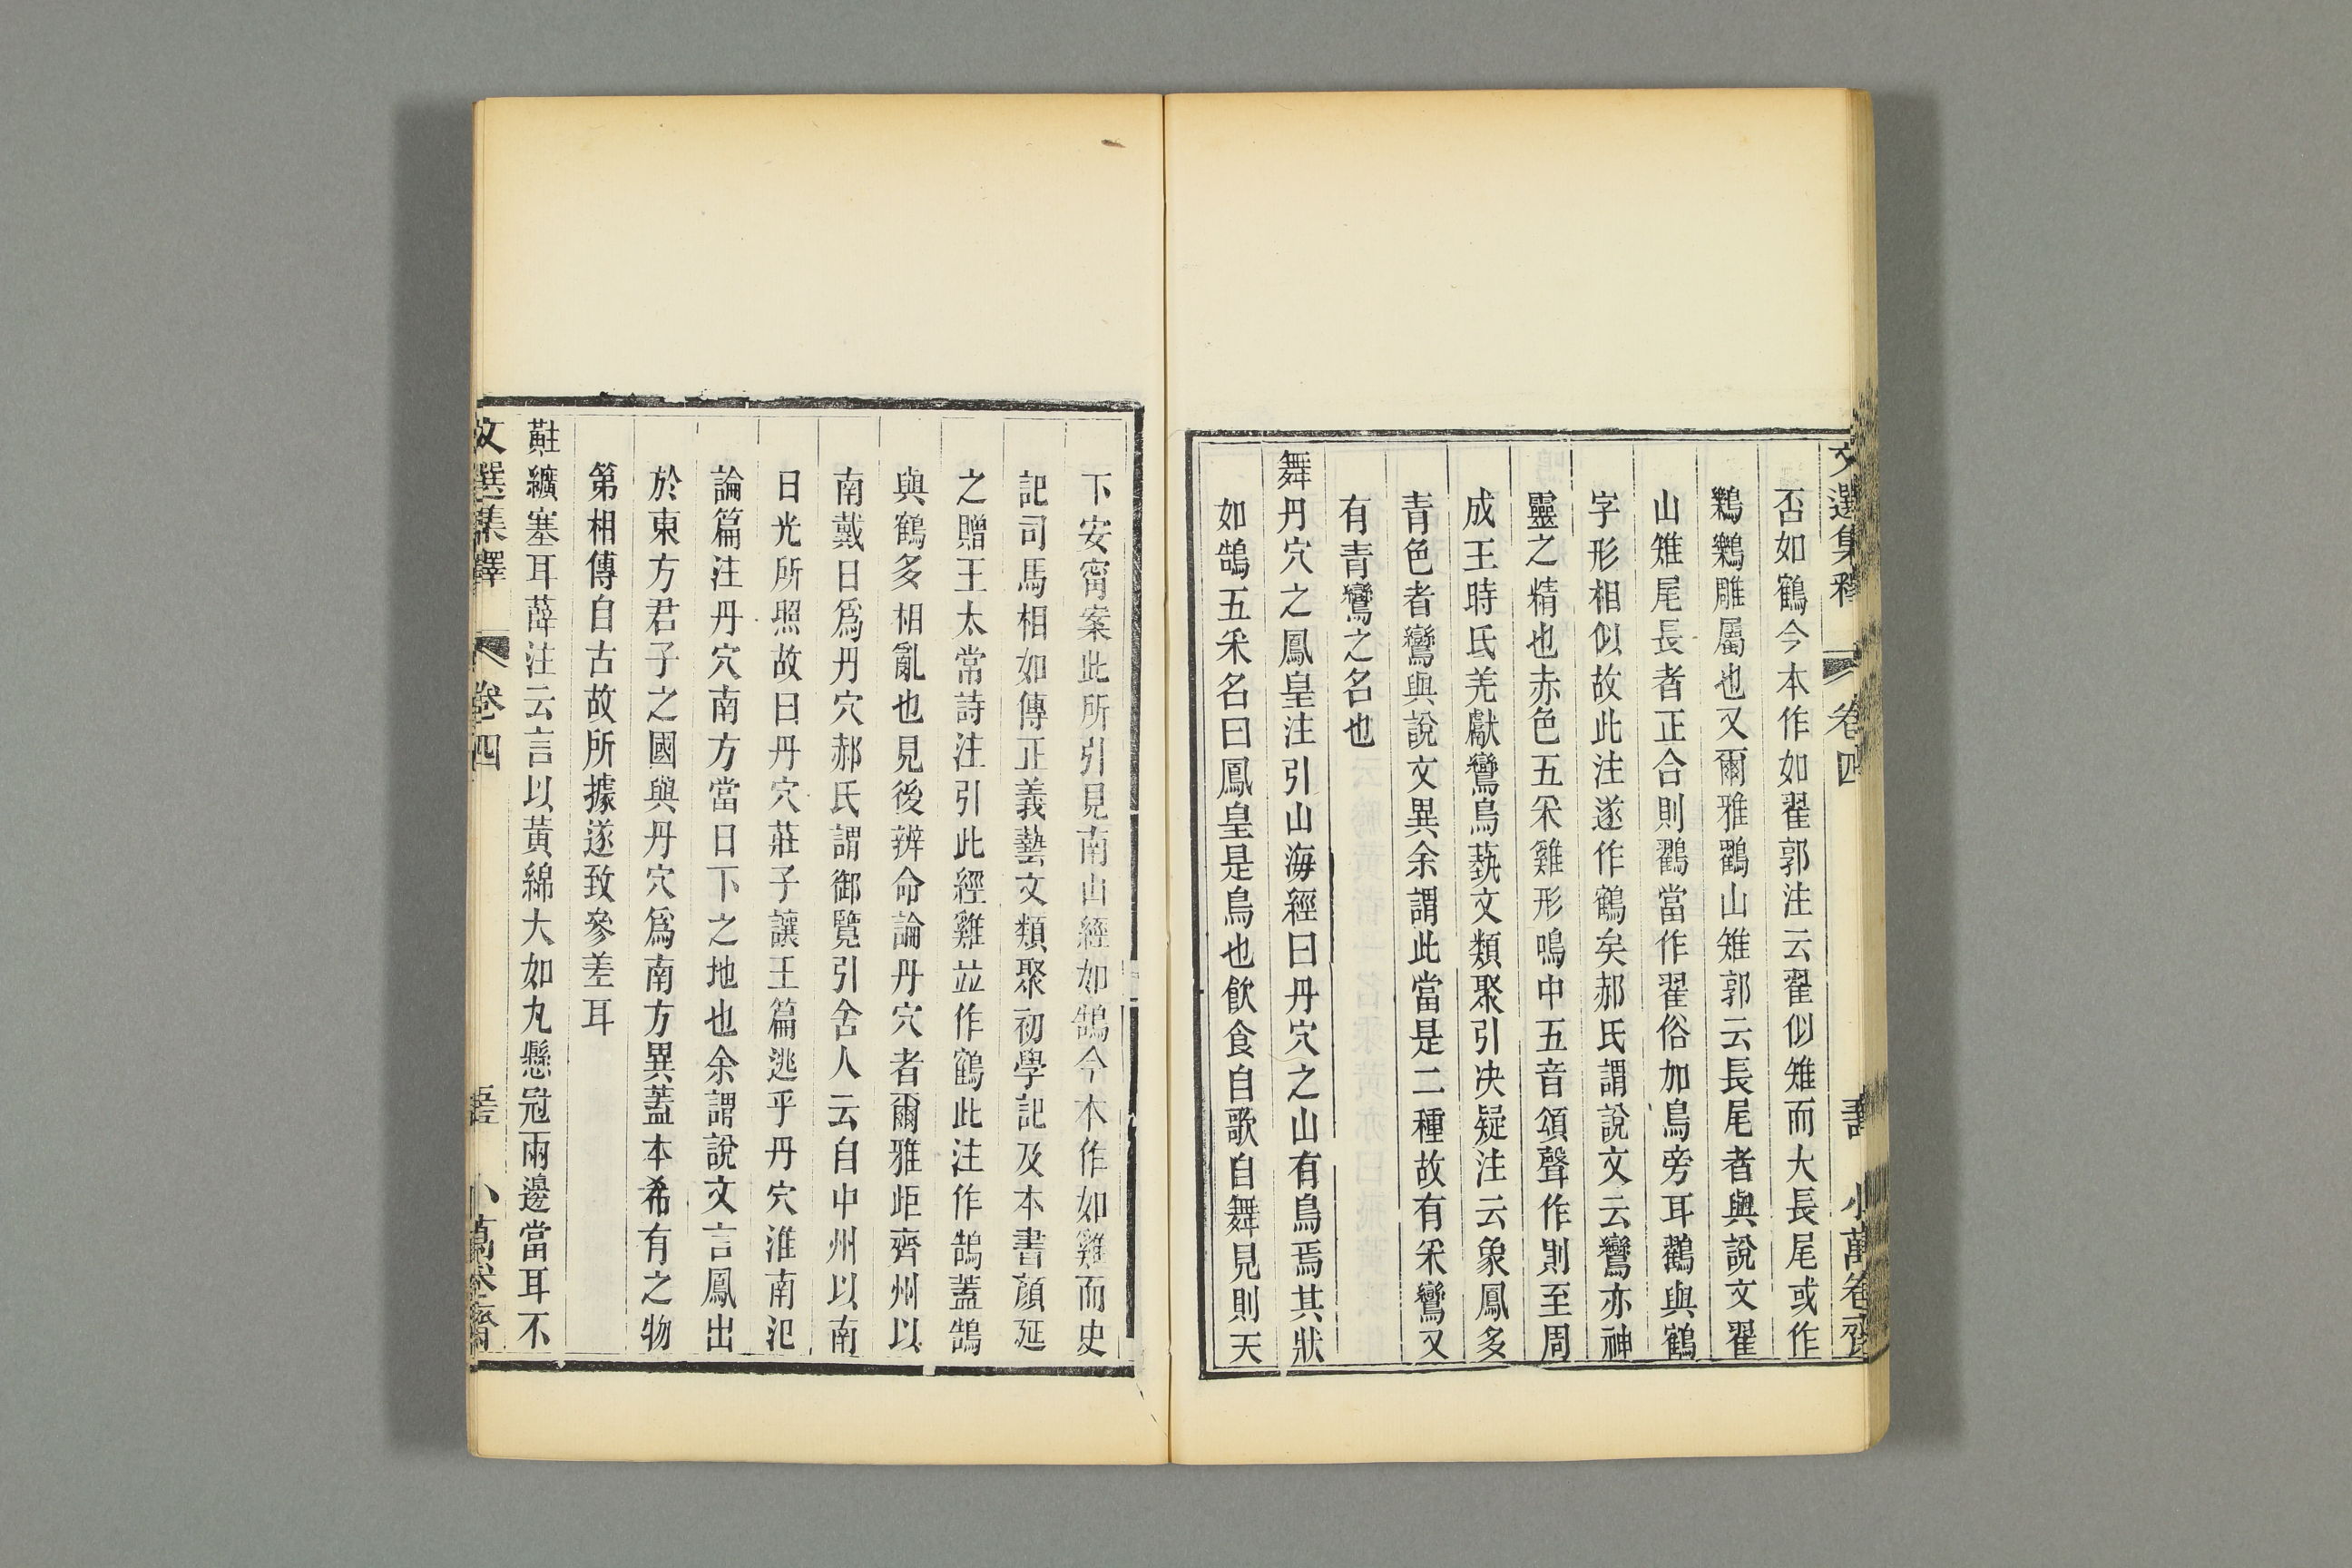 文選集釋 卷四 小萬卷齋
否如鶴今本作如翟郭注云翟似雉而大長尾或作
鸐鸐雕屬也又爾雅鸐山雉郭云長尾者與說文翟
山雉尾長者正合則鸐當作翟俗加鳥旁耳鸐與鶴
字形相似故此注遂作鶴矣郝氏謂說文云鸞亦神
靈之精也赤色五采雞形鳴中五音頌聲作則至周
成王時氐羌獻鸞鳥藝文類聚引决疑注云象鳳多
青色者鸞與說文異余謂此當是二種故有采鸞又
有青鸞之名也
舞丹穴之鳳皇注引山海經曰丹穴之山有鳥焉其狀
如鵠五采名曰鳳皇是鳥也飲食自歌自舞見則天
下安甯案此所引見南山經如鵠今本作如雞而史
記司馬相如傳正義藝文類聚初學記及本書顏延
之贈王太常詩注引此經雞並作鶴此注作鵠蓋鵠
與鶴多相亂也見後辨命論丹穴者爾雅岠齊州以
南戴日爲丹穴郝氏謂御覽引舍人云自中州以南
日光所照故曰丹穴莊子讓王篇逃乎丹穴淮南氾
論篇注丹穴南方當日下之地也余謂說文言鳳出
於東方君子之國與丹穴爲南方異蓋本希有之物
第相傳自古故所據遂致參差耳
黈纊塞耳薛注云言以黃綿大如丸懸冠兩邊當耳不
文選集釋 卷四 小萬卷齋